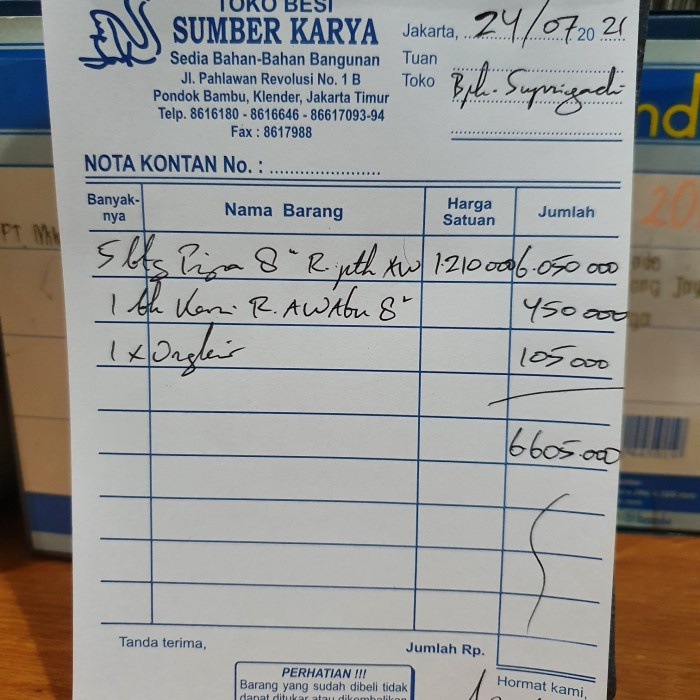 TOKO BESI
SUMBER KARYA
Sedia Bahan-Bahan Bangunan
Jl. Pahlawan Revolusi No. 1 B
Pondok Bambu, Klender, Jakarta Timur
Telp. 8616180 - 8616646 - 86617093-94
Fax : 8617988
Jakarta, 24/07 20 21
Tuan
Toko Bph. Supriyadi
NOTA KONTAN No. :
Banyak-nya Nama Barang Harga Satuan Jumlah
5 btg Pipa 8" R pth AW 1.210 000 6.050 000
1 bh R. AW Abu 8" 450 000
1 x Ongkir 105 000
6605.000
Tanda terima,
Jumlah Rp.
Hormat kami,
PERHATIAN !!!
Barang yang sudah dibeli tidak
dapat ditukar atau dikembalikan